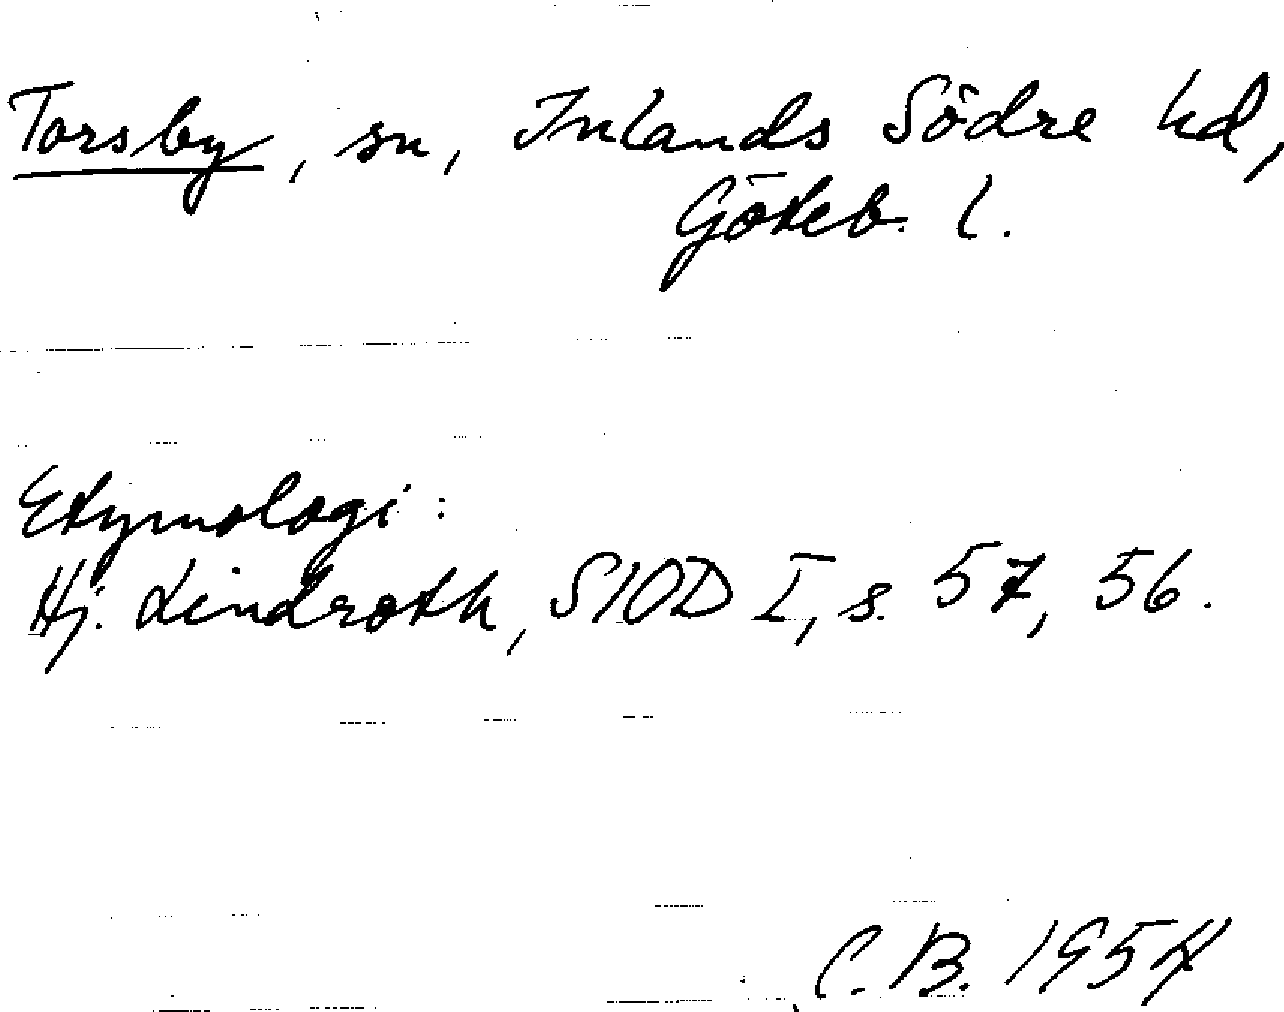 Torsby, sn, Inlands Södre hd,
Göteb. l.
Etymologi:
Hj. Lindroth, SIOD I, s. 57, 56.
C. B. 1954